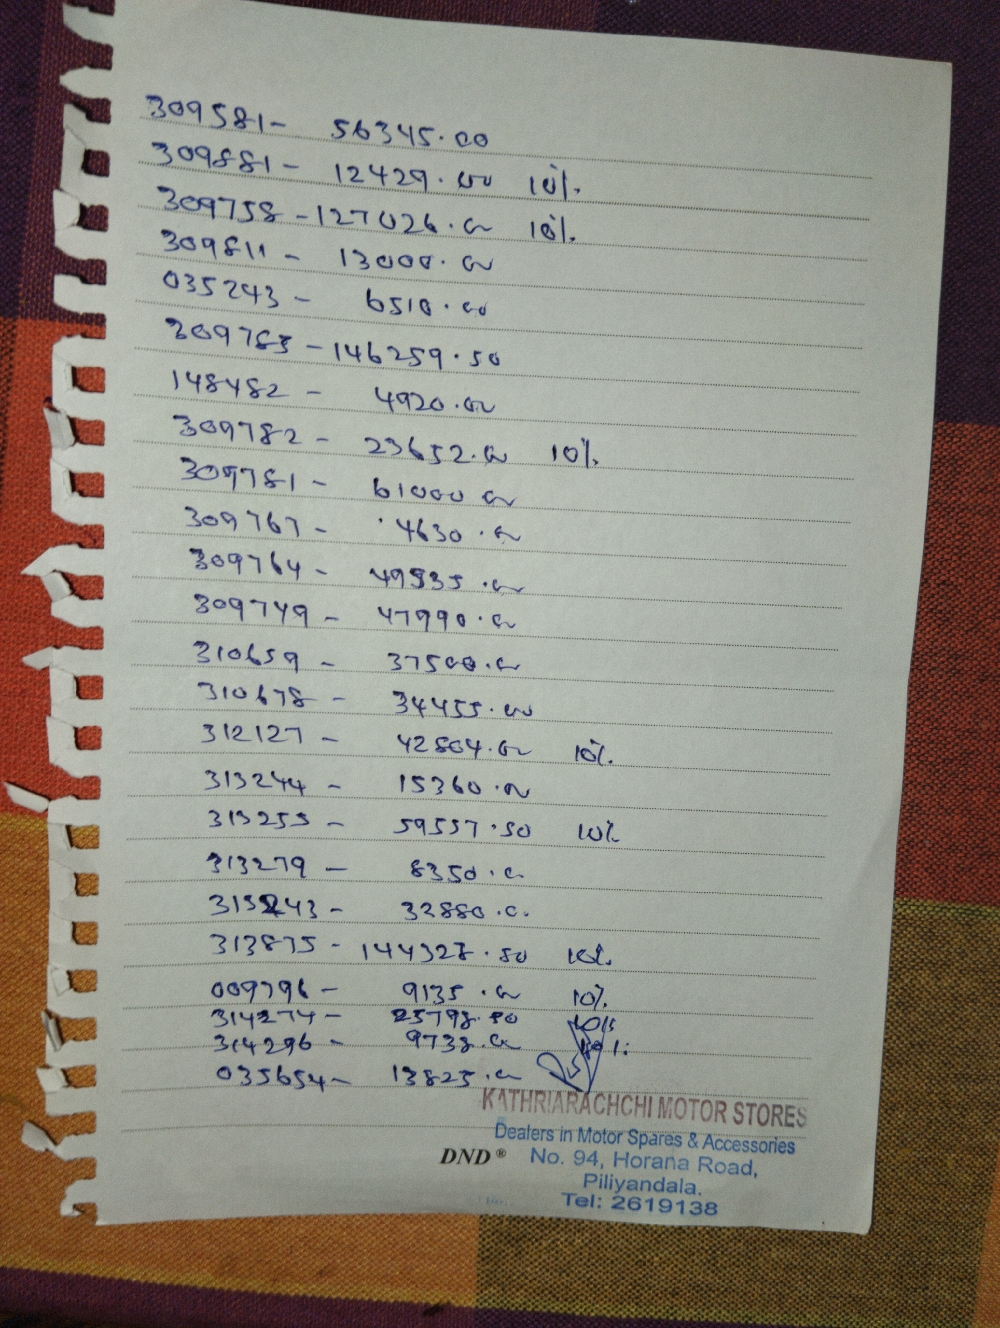 309581 - 56345.00
309881 - 12429.00 10%
309758 - 127026.00 10%
309811 - 13000.00
035243 - 6510.00
309783 - 146259.50
148482 - 4920.00
309782 - 23652.00 10%
309781 - 61000 00
309767 - 4630.00
309764 - 49535.00
309749 - 47990.00
310659 - 37500.00
310678 - 34455.00
312127 - 42804.00 10%
313244 - 15360.00
313255 - 59557.50 10%
313279 - 8350.00
313243 - 32880.00
313875 - 144327.50 10%
009796 - 9135.00 10%
314274 - 25798.50 10%
314296 - 9738.00 10%
035654 - 13825.00
KATHRIARACHCHI MOTOR STORES
Dealers in Motor Spares & Accessories
DND® No. 94, Horana Road,
Piliyandala.
Tel: 2619138